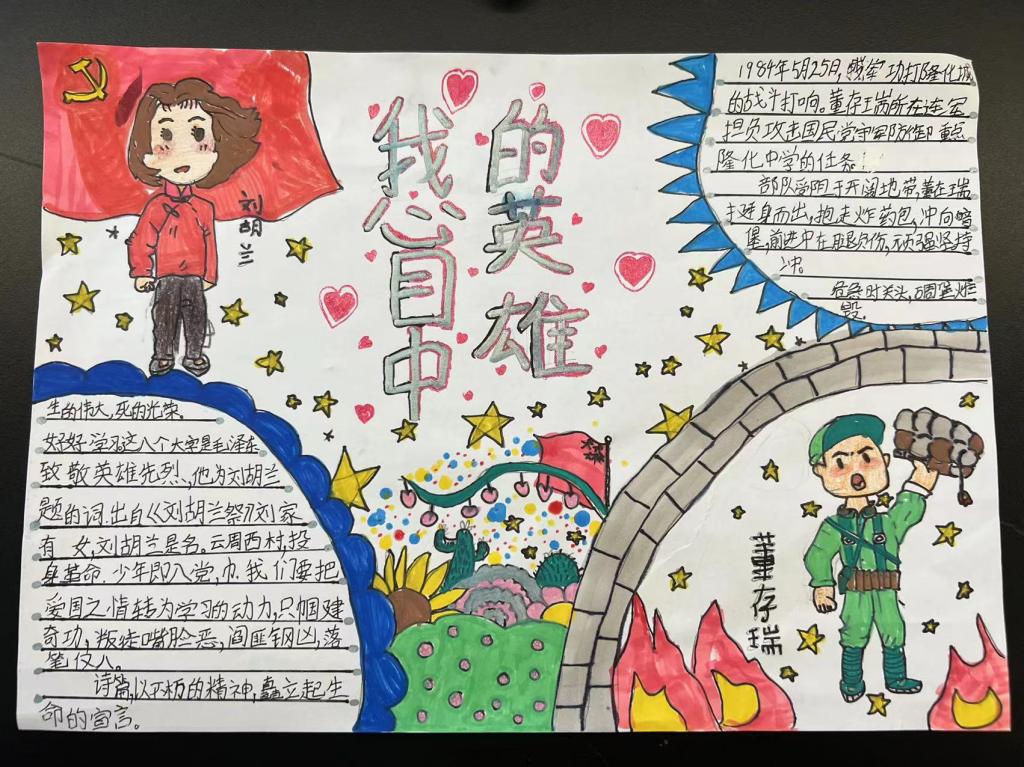 我心目中
的英雄
刘胡兰
1984年5月25日,我军功打隆化城
的战斗打响。董存瑞所在连军
担负攻击国民党守军防御重点
隆化中学的任务!
部队受阻于开阔地带,董存瑞
挺身而出,抱走炸药包,冲向暗
堡,前进中左腿负伤,顽强坚持
冲。
危急时关头,碉堡炸
毁。
生的伟大,死的光荣。
好好学习这八个大字是毛泽东
致敬英雄先烈,他为刘胡兰
题的词.出自《刘胡兰祭》刘家
有一女,刘胡兰是名。云周西村,投
身革命.少年即入党,巾我们要把
爱国之情转为学习的动力,只帼建
奇功,叛徒嘴脸恶,阎匪钢凶,落
笔仅八。
诗篇,以不朽的精神,矗立起生
命的宣言。
董存瑞